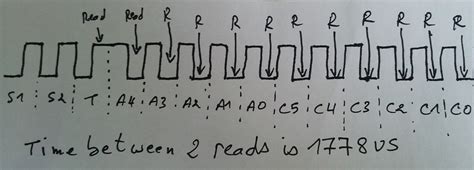 Read Read R R R R R R R R R R
S1 S2 T A4 A3 A2 A1 A0 C5 C4 C3 C2 C1 C0
Time between 2 reads is 1778us